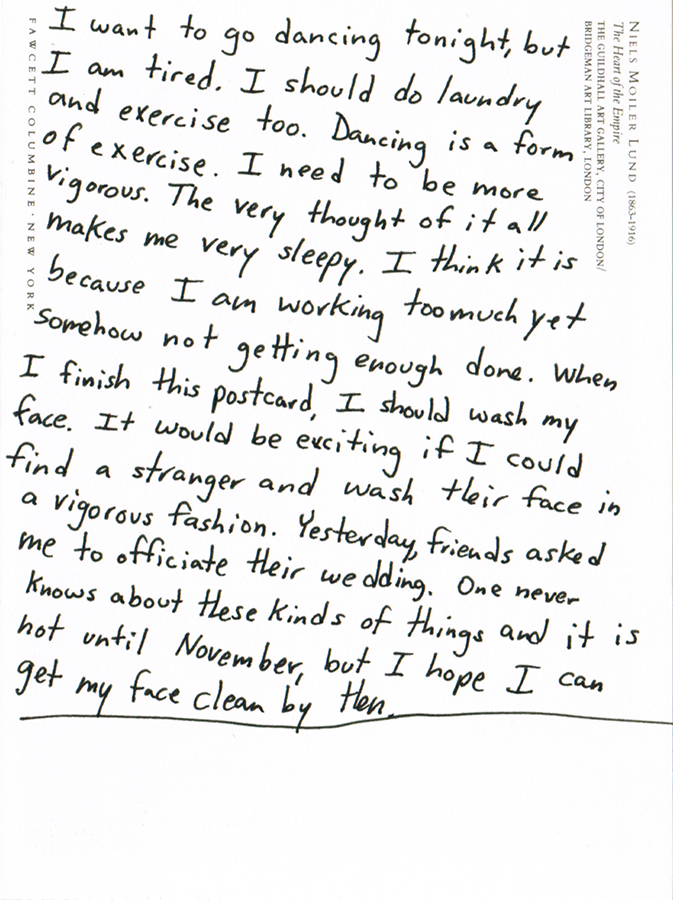 I want to go dancing tonight, but
I am tired. I should do laundry
and exercise too. Dancing is a form
of exercise. I need to be more
vigorous. The very thought of it all
makes me very sleepy. I think it is
because I am working too much yet
somehow not getting enough done. When
I finish this postcard, I should wash my
face. It would be exciting if I could
find a stranger and wash their face in
a vigorous fashion. Yesterday, friends asked
me to officiate their wedding. One never
knows about these kinds of things and it is
not until November, but I hope I can
get my face clean by then.
NIELS MOILER LUND (1863–1916)
The Heart of the Empire
THE GUILDHALL ART GALLERY, CITY OF LONDON/
BRIDGEMAN ART LIBRARY, LONDON
FAWCETT COLUMBINE · NEW YORK